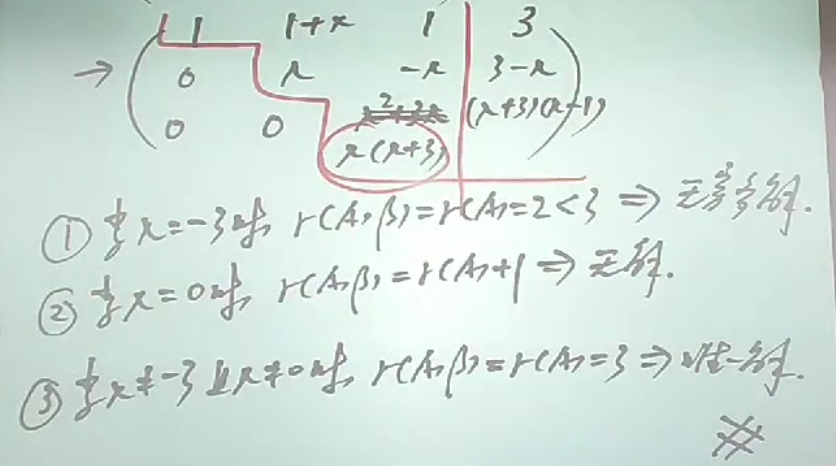 1 1+λ 1 3
→ 0 λ -λ 3-λ
0 0 λ(λ+3) (λ+3)(λ-1)
① 当λ=-3时, r(A,β)=r(A)=2<3 ⇒ 无穷多解.
② 当λ=0时, r(A,β)=r(A)+1 ⇒ 无解.
③ 当λ≠-3且λ≠0时, r(A,β)=r(A)=3 ⇒ 唯一解.
#